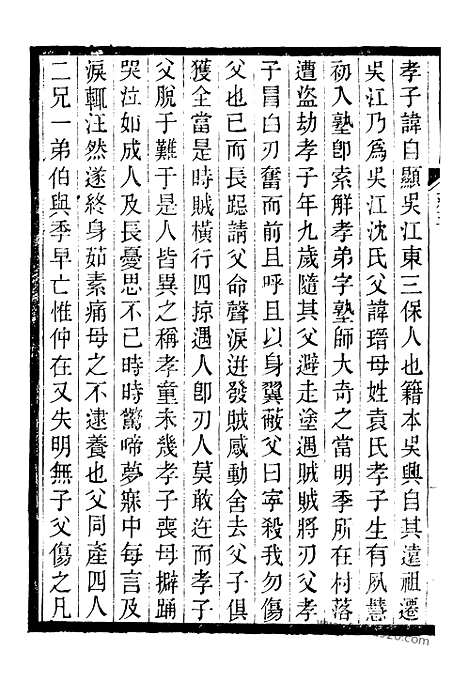 孝子諱自顯吳江東三保人也籍本吳興自其遠祖遷
吳江乃爲吳江沈氏父諱瑨母姓袁氏孝子生有夙慧
初入塾卽索解孝弟字塾師大奇之當明季所在村落
遭盜劫孝子年九歲隨其父避走塗遇賊賊將刃父孝
子冒白刃奮而前且呼且以身翼蔽父曰寧殺我勿傷
父也已而長跽請父命聲淚迸發賊感動舍去父子俱
獲全當是時賊橫行四掠遇人卽刃人莫敢迕而孝子
父脫于難于是人皆異之稱孝童未幾孝子喪母擗踊
哭泣如成人及長憂思不已時時驚啼夢寐中每言及
淚輒汪然遂終身茹素痛母之不逮養也父同產四人
二兄一弟伯與季早亡惟仲在又失明無子父傷之凡